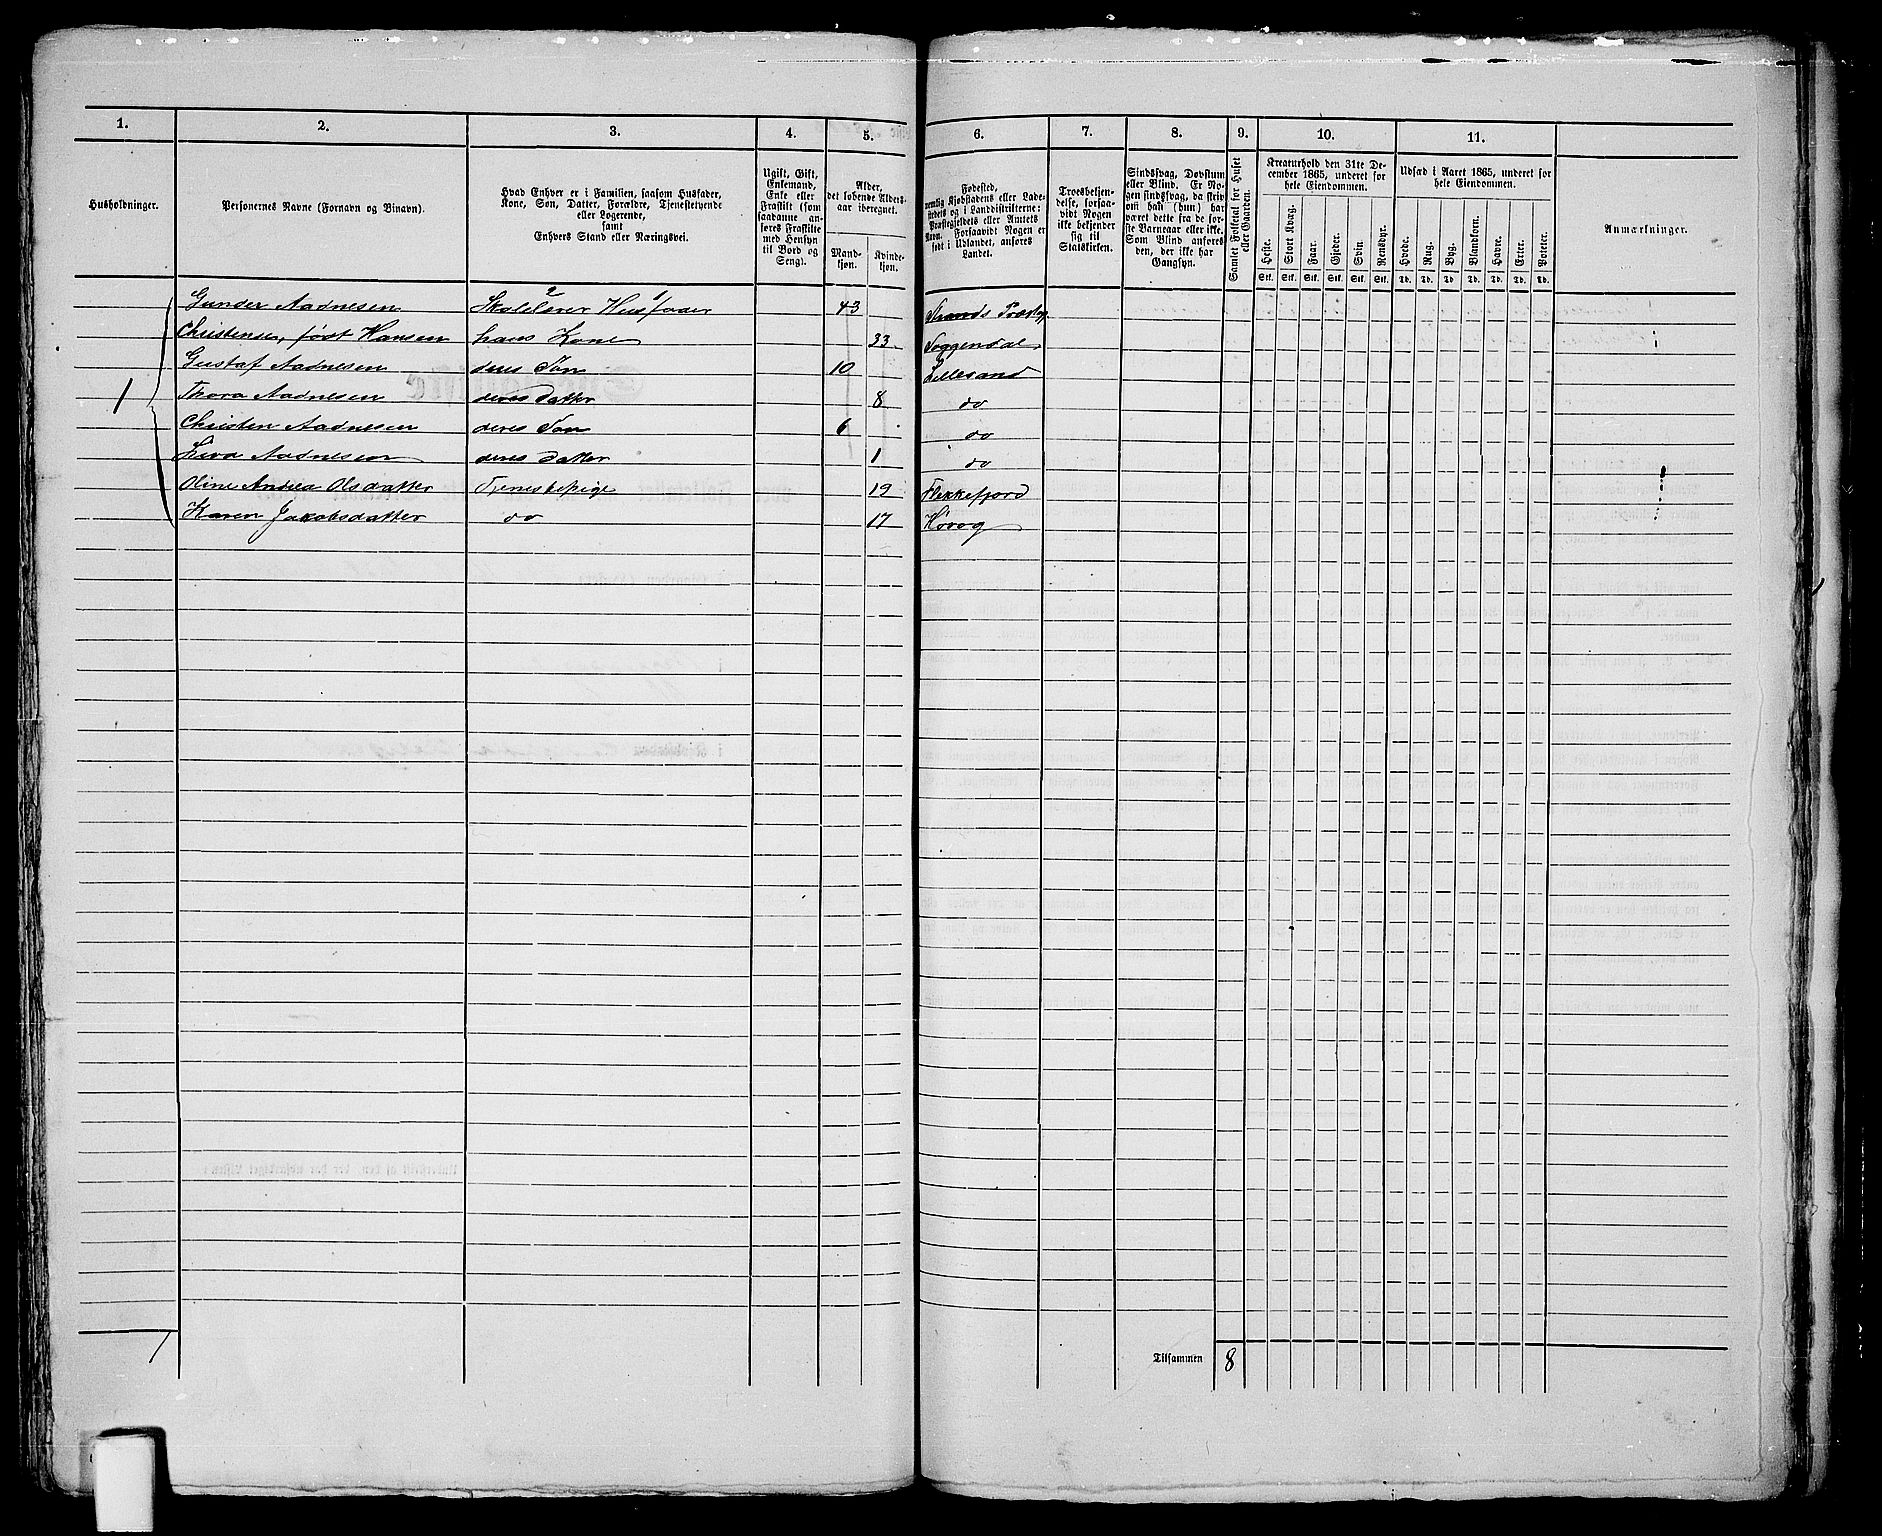 1. 2. 3. 4. 5. 6. 7. 8. 9. 10. 11.
Husholdninger.
Personernes Navne (Fornavn og Binavn).
Hvad Enhver er i Familien, saasom Husfader,
Kone, Søn, Datter, Forældre, Tjenestetyende
eller Logerende,
samt
Enhvers Stand eller Næringsvei.
Ugift, Gift,
Enkemand,
Enke eller
Fraskilt (som
saadanne an-
føres Fraskilte
med Hensyn
til Bord og
Seng).
Alder,
det løbende Alders-
aar iberegnet.
Mand-
kjøn.
Kvinde-
kjøn.
Fødested,
nemlig Kjøbstadens eller Lade-
stedets og i Landdistrikterne:
Præstegjeldets eller Amtets
Navn. Forsaavidt Nogen er
født i Udlandet, anføres
Landet.
Troesbekjen-
delse, forsaa-
vidt Nogen
ikke bekjender
sig til
Statskirken.
Sindssvag, Døvstum
eller Blind. Er No-
gen sindssvag, da skriv
om han (hun) har
været dette fra de før-
ste Barneaar eller ikke.
Som Blind anføres
den, der ikke har
Gangsyn.
Samlet Folketal for Huset
eller Gaarden.
Kreaturhold den 31te De-
cember 1865, underet for
hele Eiendommen.
Heste. Stort Kvæg. Faar. Gjeder. Svin. Rensdyr.
Stk. Stk. Stk. Stk. Stk. Stk.
Udsæd i Aaret 1865, underet for
hele Eiendommen.
Hvede. Rug. Byg. Blandkorn. Havre. Erter. Poteter.
Td. Td. Td. Td. Td. Td. Td.
Anmærkninger.
Gunder Aadnesen Skolelærer Husfader 43 Strands Præstgj.
Christense, født Hansen hans Kone 33 Soggendal
Gustaf Aadnesen deres Søn 10 Lillesand
1 Thora Aadnesen deres Datter 8 do
Christen Aadnesen deres Søn 6 do
Aadnesen deres Datter 1 do
Oline Andrea Olsdatter Tjenestepige 19 Flekkefjord
Karen Jakobsdatter do 17 Høvog
1
Tilsammen 8